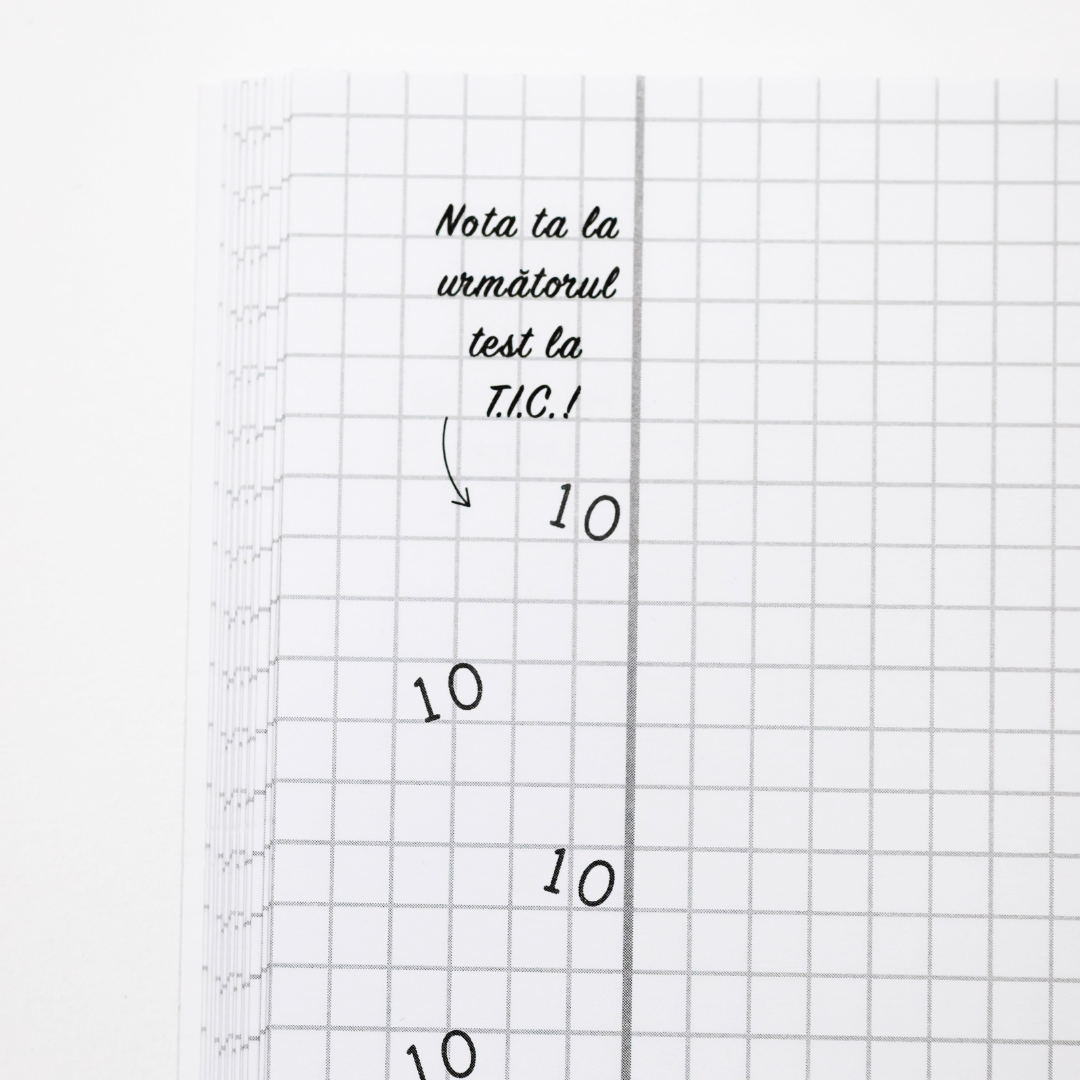 Nota ta la
următorul
test la
T.I.C.!
10
10
10
10